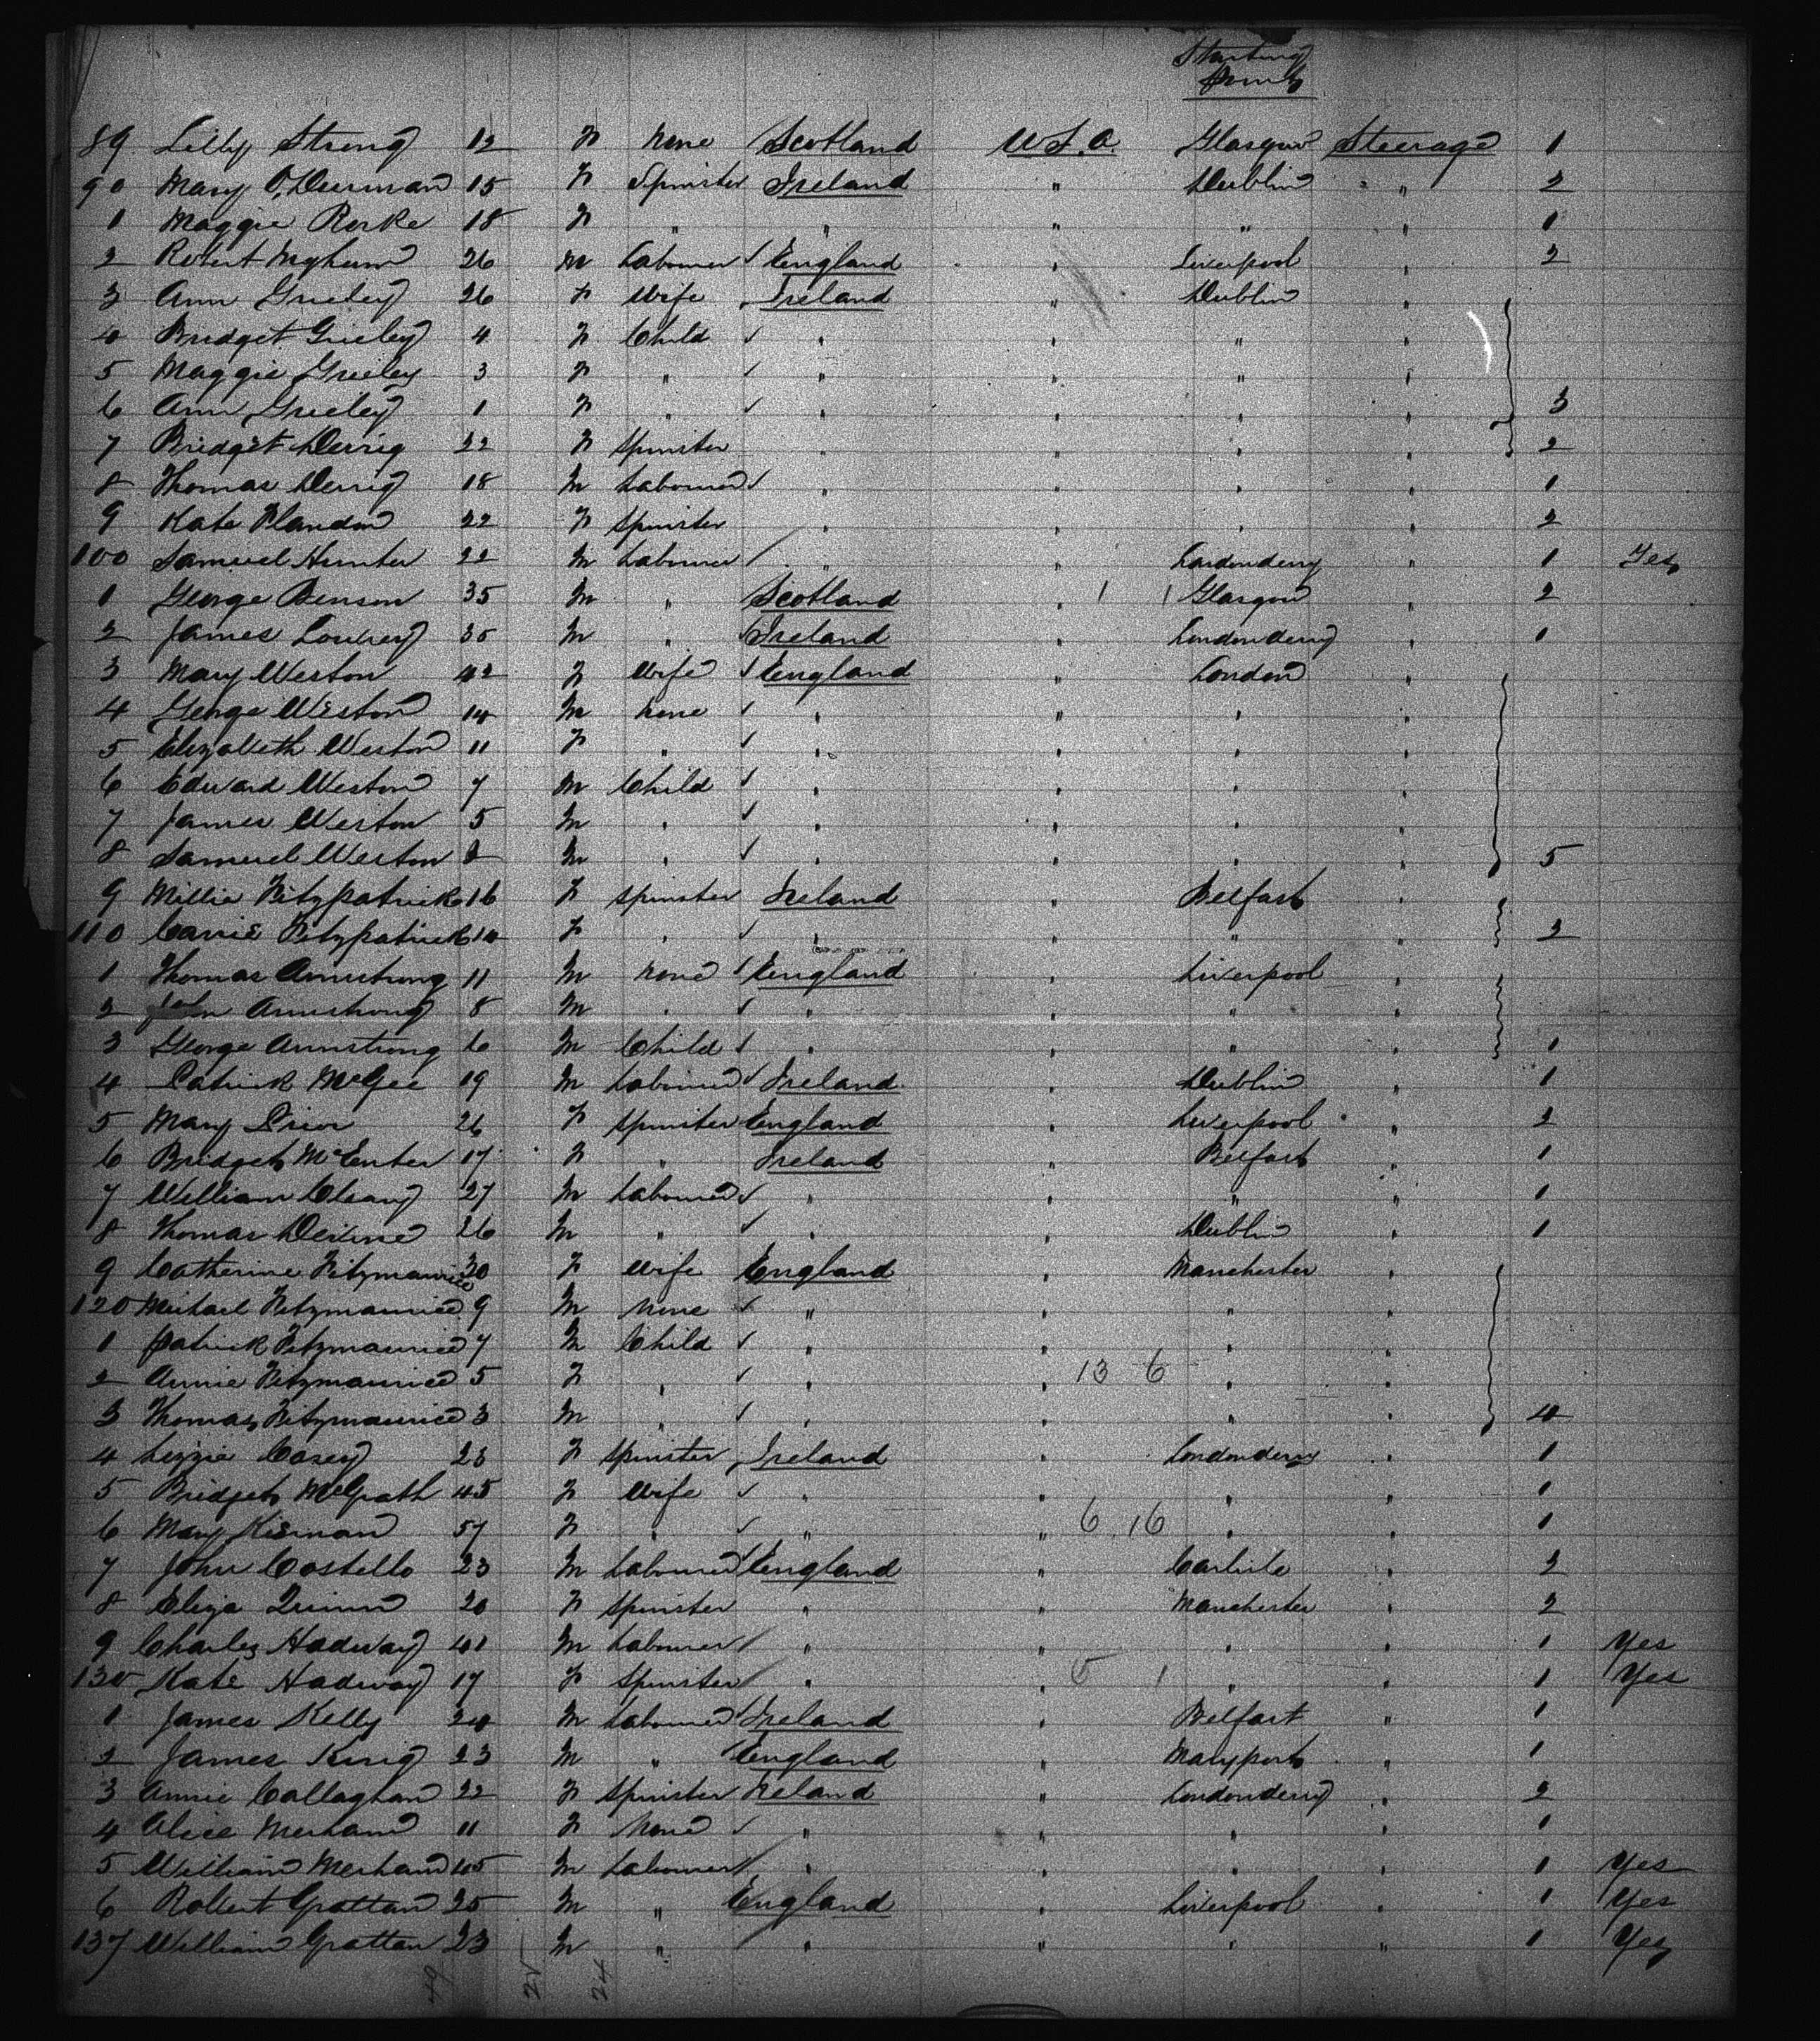 Starting
Point
89 Lilly Strong 12 F None Scotland U.S.A. Glasgow Steerage 1
90 Mary O, 15 F Spinster Ireland " Dublin " 2
1 Maggie Rorke 18 F " " " " " 1
2 Robert 26 M Labourer ✓ England " Liverpool " 2
3 Ann Grieley 26 F Wife Ireland " Dublin "
4 Bridget Grieley 4 F Child ✓ " " " "
5 Maggie Grieley 3 F " ✓ " " " "
6 Ann Grieley 1 F " ✓ " " " " 3
7 Bridget Derrig 22 F Spinster " " " " 2
8 Thomas Derrig 18 M Labourer ✓ " " " " 1
9 Kate 22 F Spinster " " " " 2
100 Samuel Hunter 22 M Labourer / " " Londonderry " 1 Yes
1 George Benson 35 M " Scotland " 1 1 Glasgow " 2
2 James Lowrey 35 M " ✓ Ireland " Londonderry " 1
3 Mary Weston 42 F Wife ✓ England " London "
4 George Weston 14 M None ✓ " " " "
5 Elizabeth Weston 11 F " ✓ " " " "
6 Edward Weston 7 M Child ✓ " " " "
7 James Weston 5 M " ✓ " " " "
8 Samuel Weston M " ✓ " " " " 5
9 Millie Fitzpatrick 16 F Spinster Ireland " Belfast "
110 Carrie Fitzpatrick 10 F " ✓ " " " " 2
1 Thomas Armstrong 11 M None ✓ England " Liverpool "
2 John Armstrong 8 M " ✓ " " " "
3 George Armstrong 6 M Child ✓ " " " " 1
4 Patrick McGee 19 M Labourer ✓ Ireland " Dublin " 1
5 Mary Prior 26 F Spinster England " Liverpool " 2
6 Bridget McEnter 17 F " Ireland " Belfast " 1
7 William 27 M Labourer ✓ " " " " 1
8 Thomas Devine 26 M " ✓ " " Dublin " 1
9 Catherine Fitzmaurice 30 F Wife England " Manchester "
120 Michael Fitzmaurice 9 M None ✓ " " " "
1 Patrick Fitzmaurice 7 M Child ✓ " " " "
2 Annie Fitzmaurice 5 F " ✓ " " 13 6 " "
3 Thomas Fitzmaurice 3 M " ✓ " " " " 4
4 Lizzie Casey 23 F Spinster Ireland " Londonderry " 1
5 Bridget McGrath 45 F Wife ✓ " " " " 1
6 Mary Kiernan 57 F " ✓ " " 6 16 " " 1
7 John Costello 23 M Labourer ✓ England " Carlisle " 2
8 Eliza Quinn 20 F Spinster " " Manchester " 2
9 Charles Hadway 41 M Labourer / " " " " 1 Yes
130 Kate Hadway 17 F Spinster / " " 5 1 " " 1 Yes
1 James Kelly 24 M Labourer Ireland " Belfast " 1
2 James King 23 M " England " Maryport " 1
3 Annie Callaghan 22 F Spinster Ireland " Londonderry " 2
4 Alice 11 F None ✓ " " " " 1
5 William 45 M Labourer / " " " " 1 Yes
6 Robert Grattan 25 M " England " Liverpool " 1 Yes
137 William Grattan 23 M " / " " " " 1 Yes
49 25 24